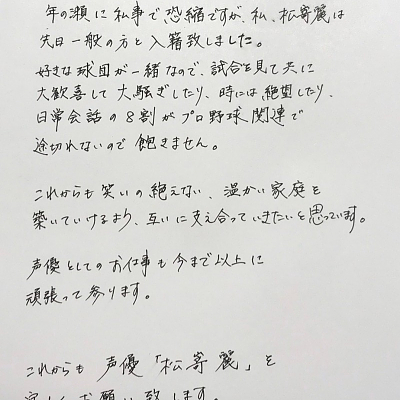 年の瀬に私事で恐縮ですが、私、松嵜麗は
先日一般の方と入籍致しました。
好きな球団が一緒なので、試合を見て共に
大歓喜して大騒ぎしたり、時には絶望したり、
日常会話の8割がプロ野球関連で
途切れないので飽きません。
これからも笑いの絶えない、温かい家庭を
築いていけるよう、互いに支え合っていきたいと思っています。
声優としてのお仕事も今まで以上に
頑張って参ります。
これからも声優「松嵜麗」を
宜しくお願い致します。